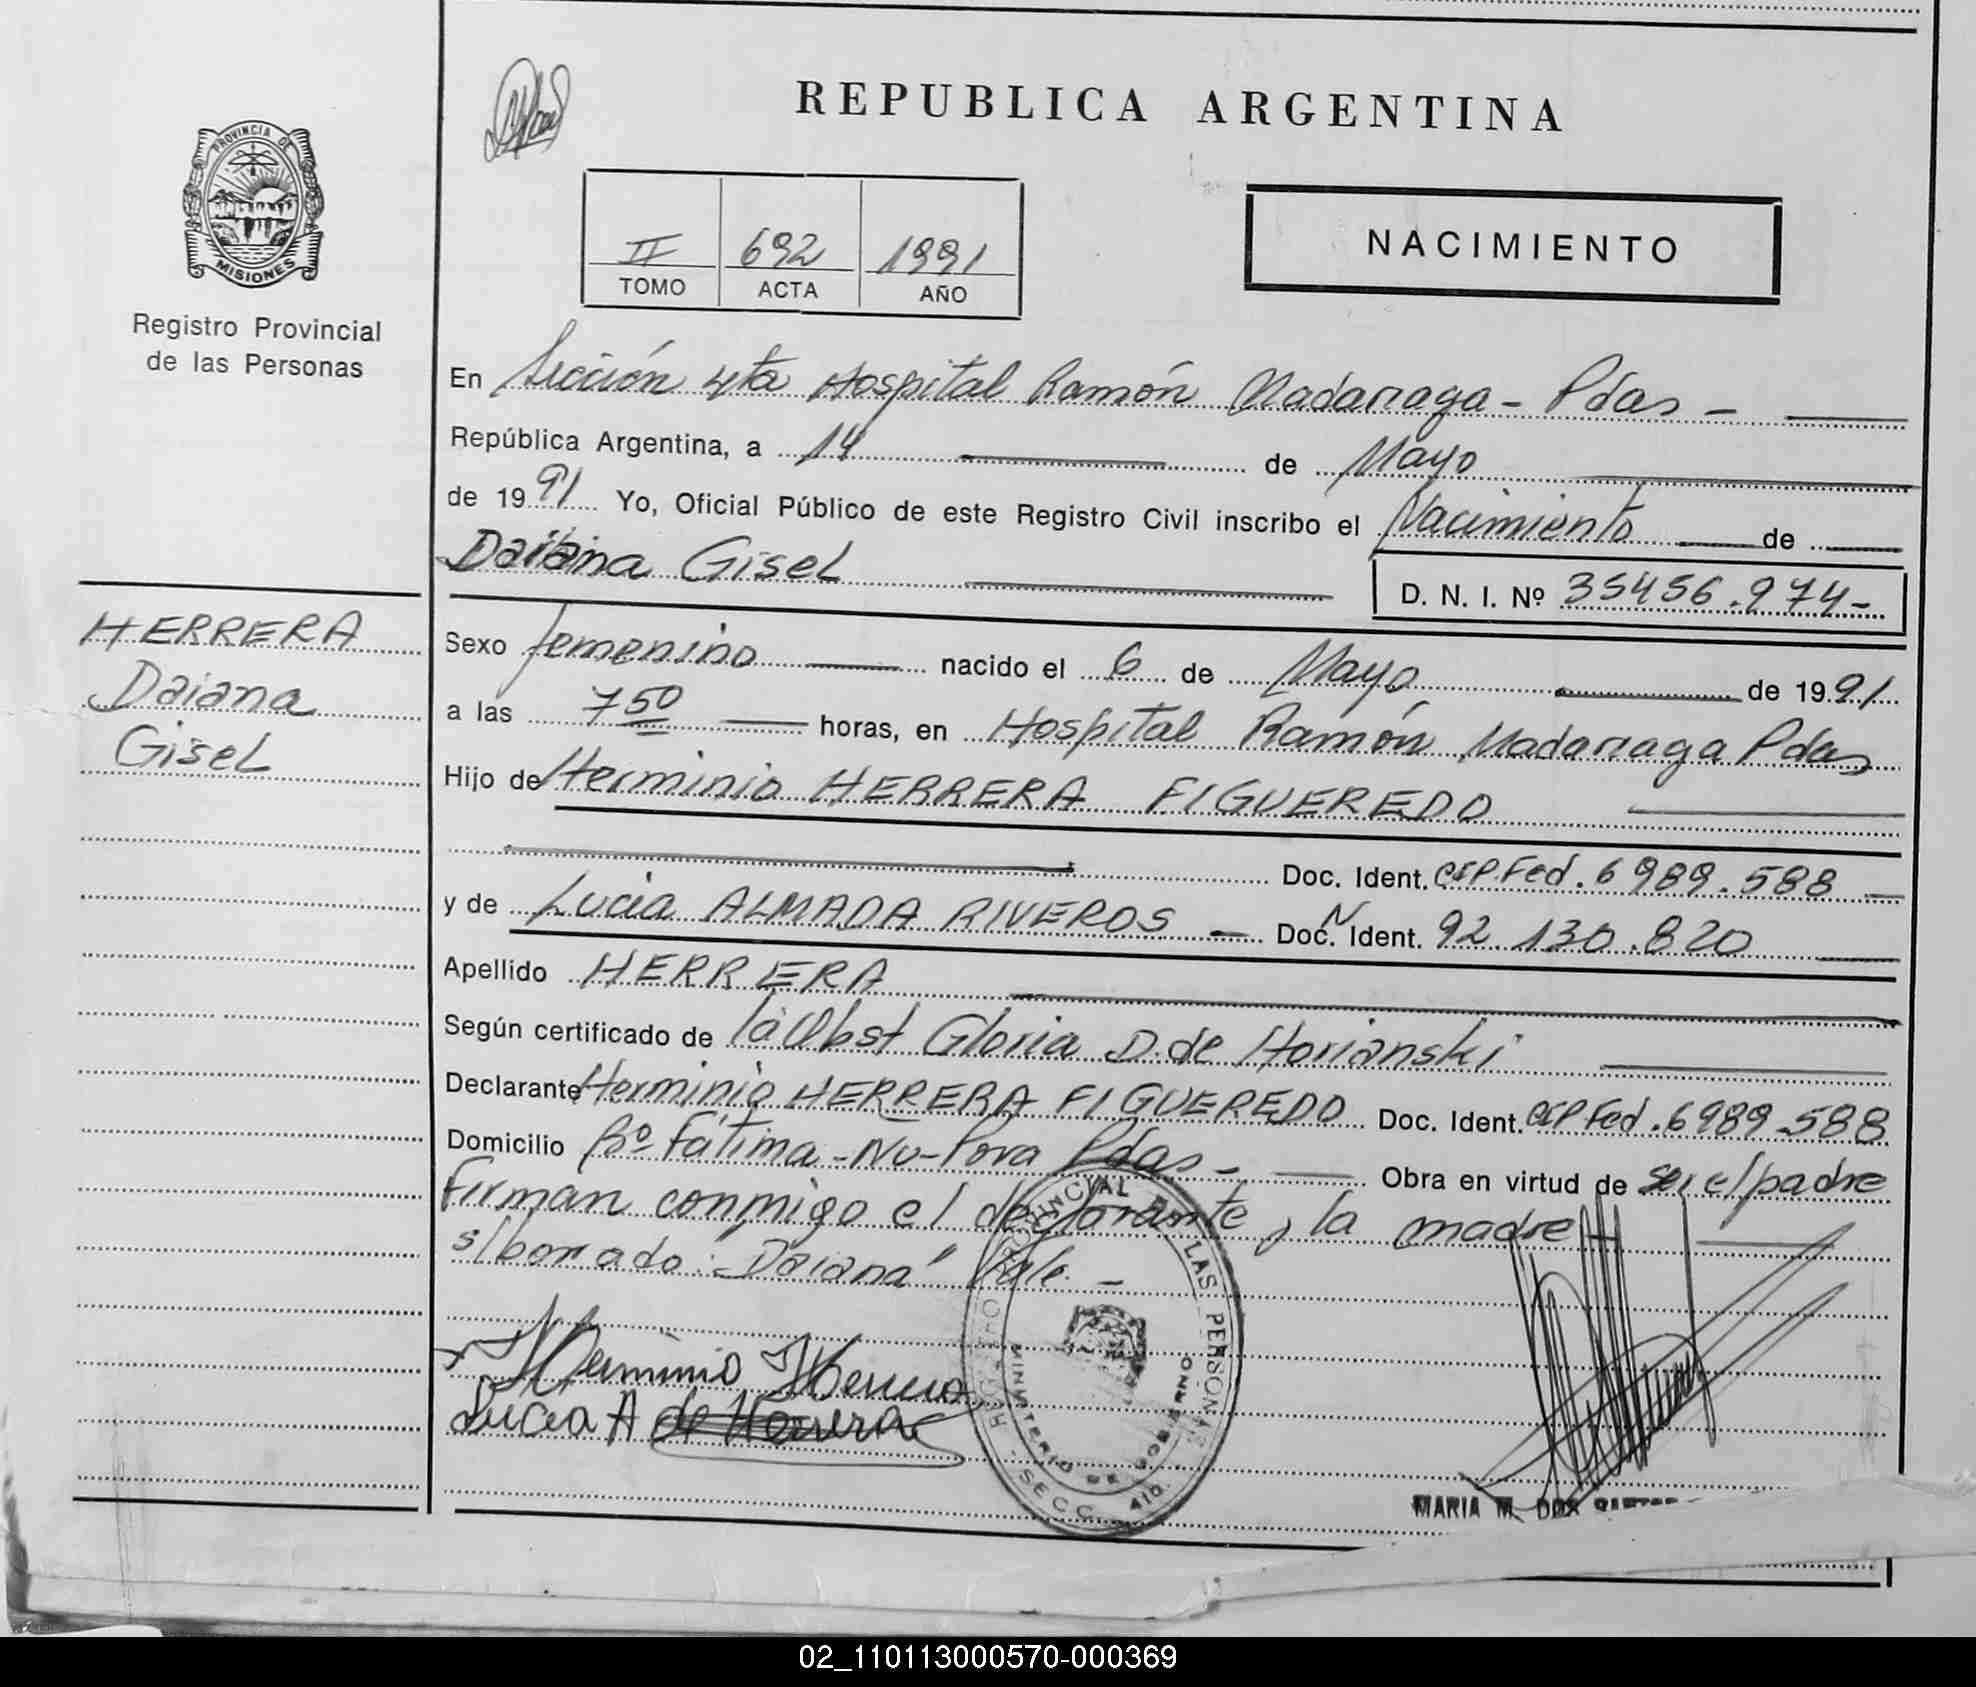 REPUBLICA ARGENTINA
PROVINCIA DE MISIONES
Registro Provincial
de las Personas
II 692 1991
TOMO ACTA AÑO
NACIMIENTO
En Sección 4ta Hospital Ramón Madariaga - Pdas -
República Argentina, a 14 de Mayo
de 1991 Yo, Oficial Público de este Registro Civil inscribo el Nacimiento de
Daiana Gisel
D. N. I. Nº 35456.974-
HERRERA
Daiana
Gisel
Sexo femenino nacido el 6 de Mayo de 1991
a las 7 50 horas, en Hospital Ramón Madariaga Pdas
Hijo de Herminio HERRERA FIGUEREDO
Doc. Ident. CIP.Fed. 6989.588
y de Lucia ALMADA RIVEROS - Doc. N Ident. 92 130.820
Apellido HERRERA
Según certificado de la Obst Gloria D. de Horianski
Declarante Herminio HERRERA FIGUEREDO Doc. Ident. CIP Fed. 6989.588
Domicilio Bº Fátima - Pdas - Obra en virtud de ser el padre
Firman conmigo el declarante y la madre
s/borrado: "Daiana" Vale. -
Herminio Herrera
Lucia A de Herrera
REGISTRO PROVINCIAL DE LAS PERSONAS
MINISTERIO DE GOBIERNO
SECC. 4ta.
MARIA M. DOS
02_110113000570-000369